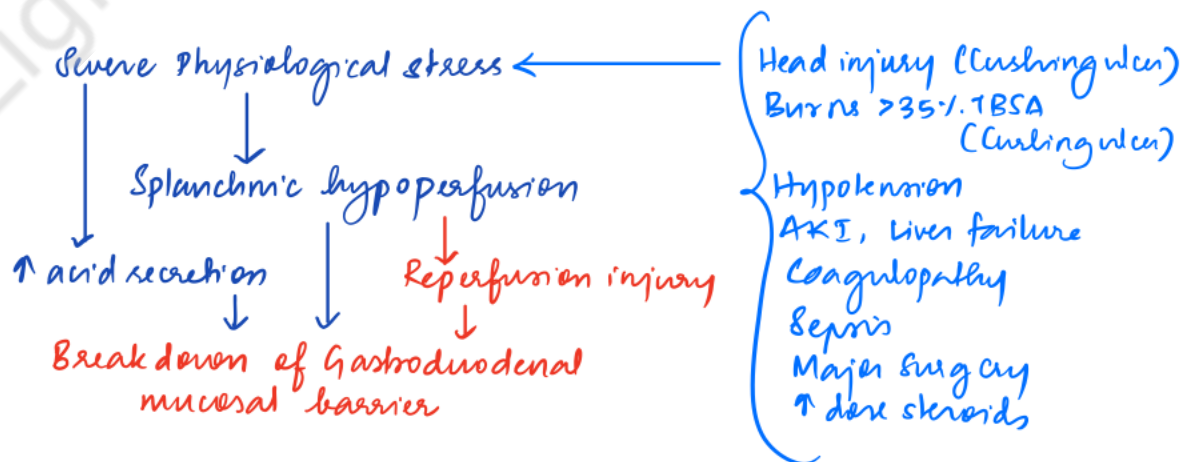 Severe Physiological stress
Splanchnic hypoperfusion
↑ acid secretion
Reperfusion injury
Breakdown of Gastroduodenal
mucosal barrier
Head injury (Cushing ulcer)
Burns >35%. TBSA
(Curling ulcer)
Hypotension
AKI, Liver failure
Coagulopathy
Sepsis
Major Surgery
↑ dose steroids